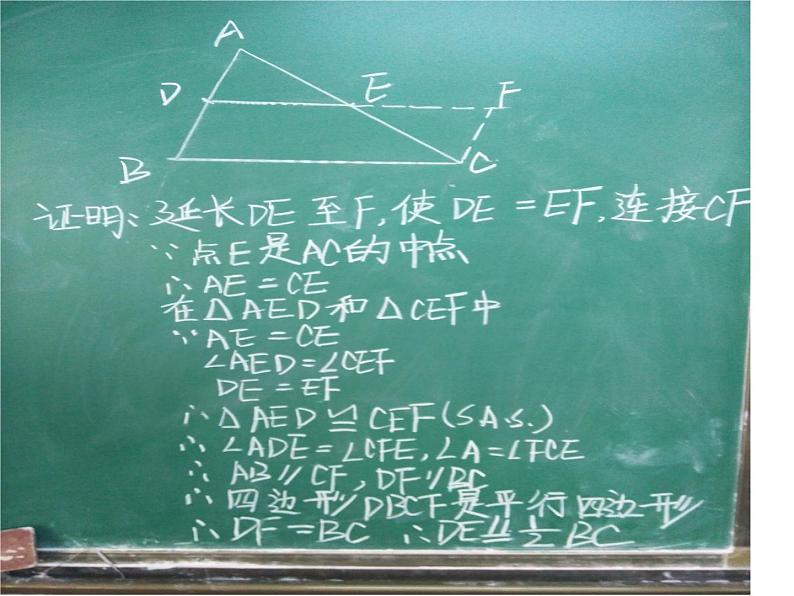 A
D E F
B C
证明:延长DE至F,使DE=EF,连接CF
∵点E是AC的中点
∴AE=CE
在△AED和△CEF中
∵AE=CE
∠AED=∠CEF
DE=EF
∴△AED≌CEF(S.A.S.)
∴∠ADE=∠CFE,∠A=∠FCE
∴AB∥CF,DF∥BC
∴四边形DBCF是平行四边形
∴DF=BC ∴DE∥=½BC